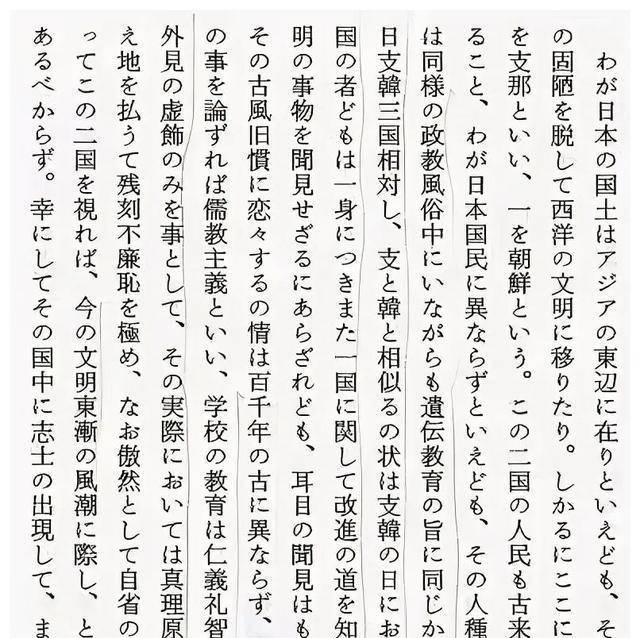 わが日本の国土はアジアの東辺に在りといえども、そ
の固陋を脱して西洋の文明に移りたり。しかるにここに
を支那といい、一を朝鮮という。この二国の人民も古来
ること、わが日本国民に異ならずといえども、その人種
は同様の政教風俗中にいながらも遺伝教育の旨に同じか
日支韓三国相対し、支と韓と相似るの状は支韓の日にお
国の者どもは一身につきまた一国に関して改進の道を知
明の事物を聞見せざるにあらざれども、耳目の聞見はも
その古風旧慣に恋々するの情は百千年の古に異ならず、
の事を論ずれば儒教主義といい、学校の教育は仁義礼智
外見の虚飾のみを事として、その実際においては真理原
え地を払うて残刻不廉恥を極め、なお傲然として自省の
ってこの二国を視れば、今の文明東漸の風潮に際し、と
あるべからず。幸にしてその国中に志士の出現して、ま